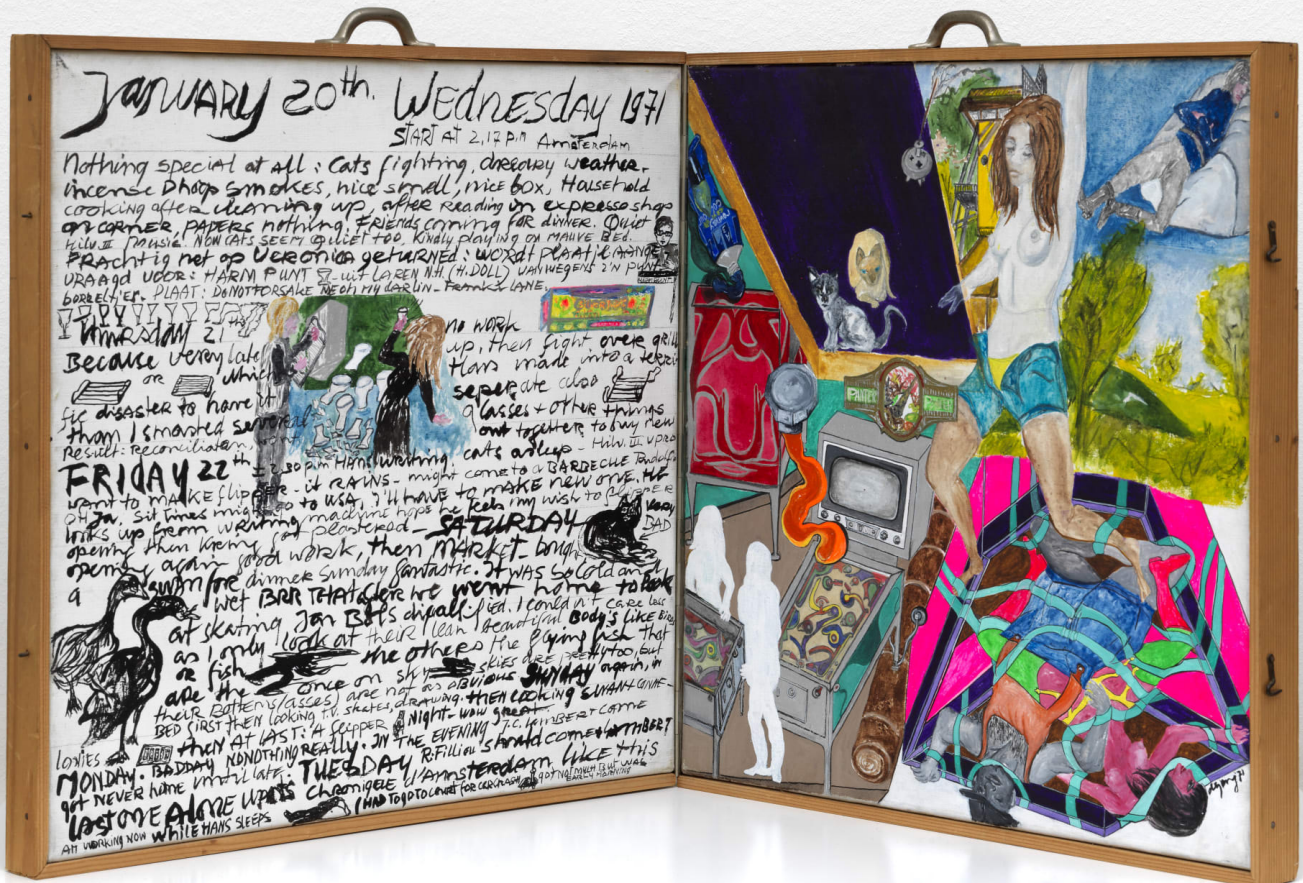 January 20th. Wednesday 1971
START AT 2,17 p.m Amsterdam
Nothing special at all : Cats fighting, dreary weather.
incense Dhoop smokes, nice smell, nice box, Household
cooking after cleaning up, after Reading in expresso shop
on corner, papers nothing. Friends coming for dinner. Quiet
Hilv. III music. Now cats seem quiet too, kindly playing on mauve bed.
Prachtig net op Veronica geturned : wordt plaatje aange
vraagd voor : HARM PUNT uit LAREN N.H. (H. DOLL) VANWEGENS Z'N PUNT
borreltjes. PLAAT : DO NOT FORSAKE ME OH MY DARLIN - FRANKY LANE.
Thursday 21th no work
Because very late up, then fight over grill
or which Hans made into a terri
fic disaster to have it seperate also
than I smasted several glasses + other things
Result : reconciliation, went out together to buy new
FRIDAY 22th ± 2.30 p.m Hans writing cats asleep - Hilv. III
want to MAKE flipper - it RAINS - might come to a BARBECUE
to USA, I'll have to make new one. HE
looks up from writing machine hope he feels my wish to flipper
opening then got plastered - SATURDAY VERY BAD
opening again good work, then MARKET - bough
a swan for dinner Sunday fantastic. It was so cold and
wet BRR THAT after we went home to look
at skating Jan Bols disqualified. I couldn't care less
as I only look at their lean beautiful body's like Birds
or fish the others the flying fish that
are the once on sky skies are pretty too, but
their bottems (asses) are not as obvious SUNDAY again, in
BED first then looking T.V. skates, drawing. then cooking SWAN
then AT LAST : A flipper Night - wow great.
Lonies
MONDAY. BAD DAY NONOTHING REALLY. IN THE EVENING T.C. LAMBERT COME
got NEVER home until late. TUESDAY R. Filliou should come + LAMBERT
LAST ONE ALONE upits chronicele v/Amsterdam like this
AM WORKING NOW while HANS SLEEPS (HAD TO GO TO COURT FOR CARCRASH GOT NOT MUCH BUT WAS
EARLY MORNING
PANTER